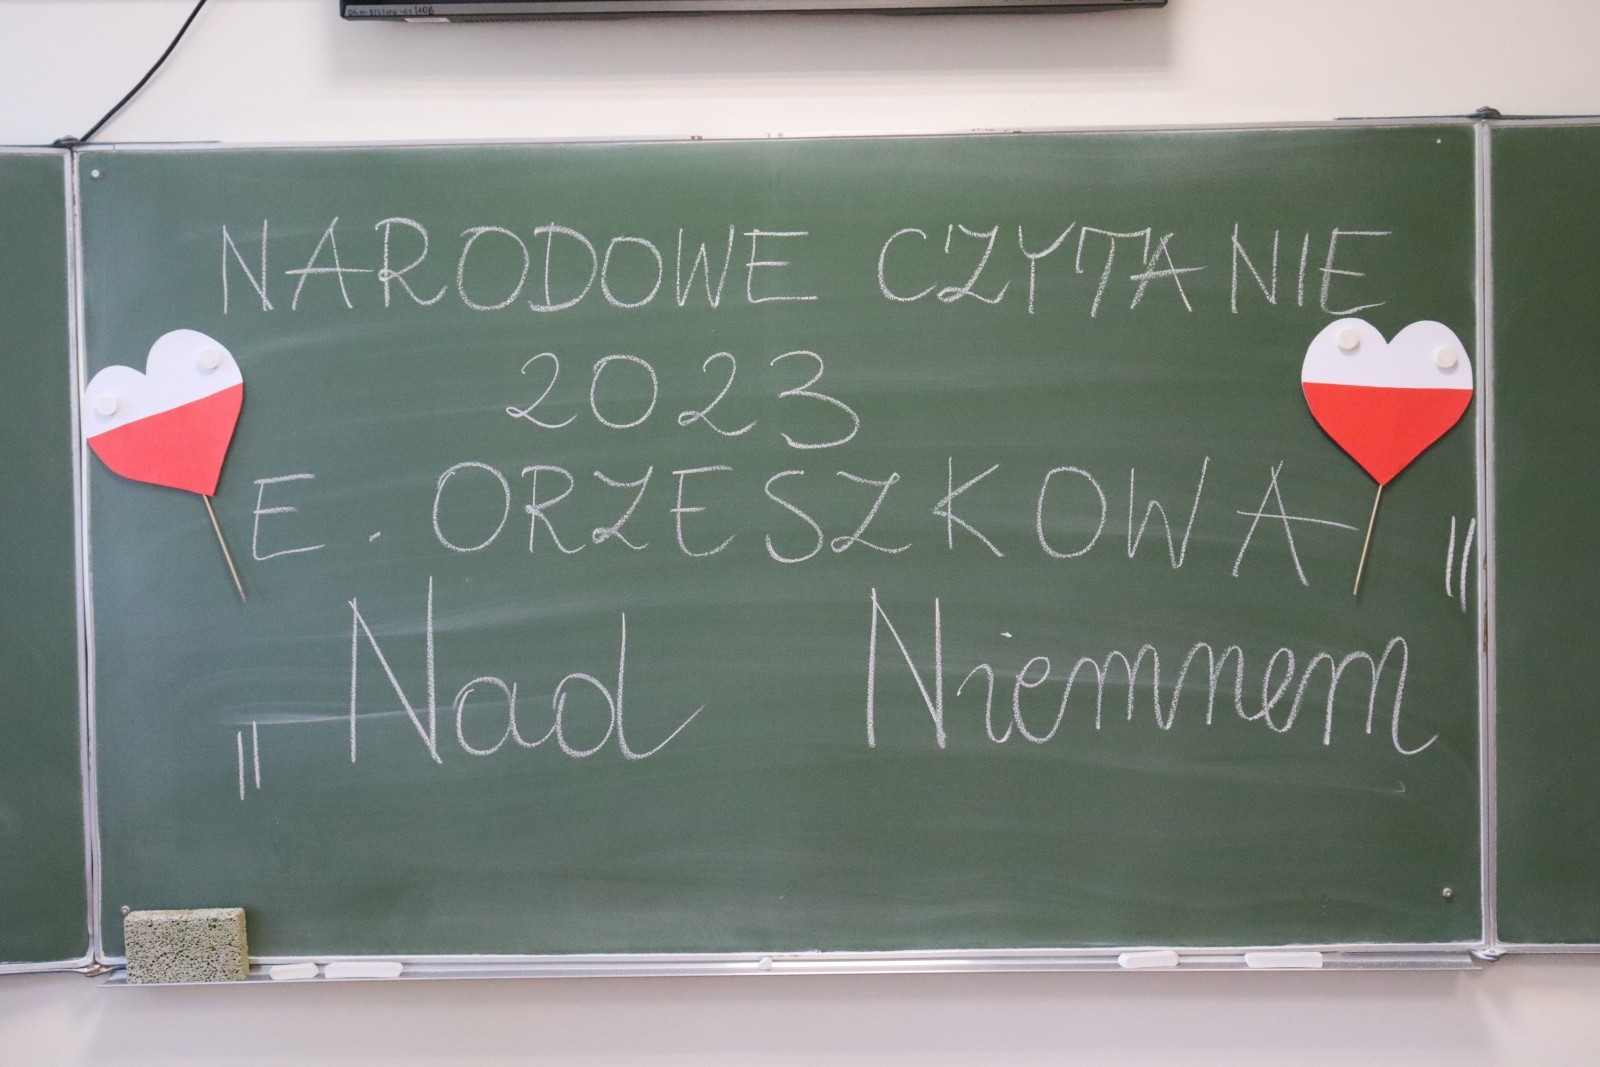 NARODOWE CZYTANIE
2023
E. ORZESZKOWA
„Nad Niemnem"